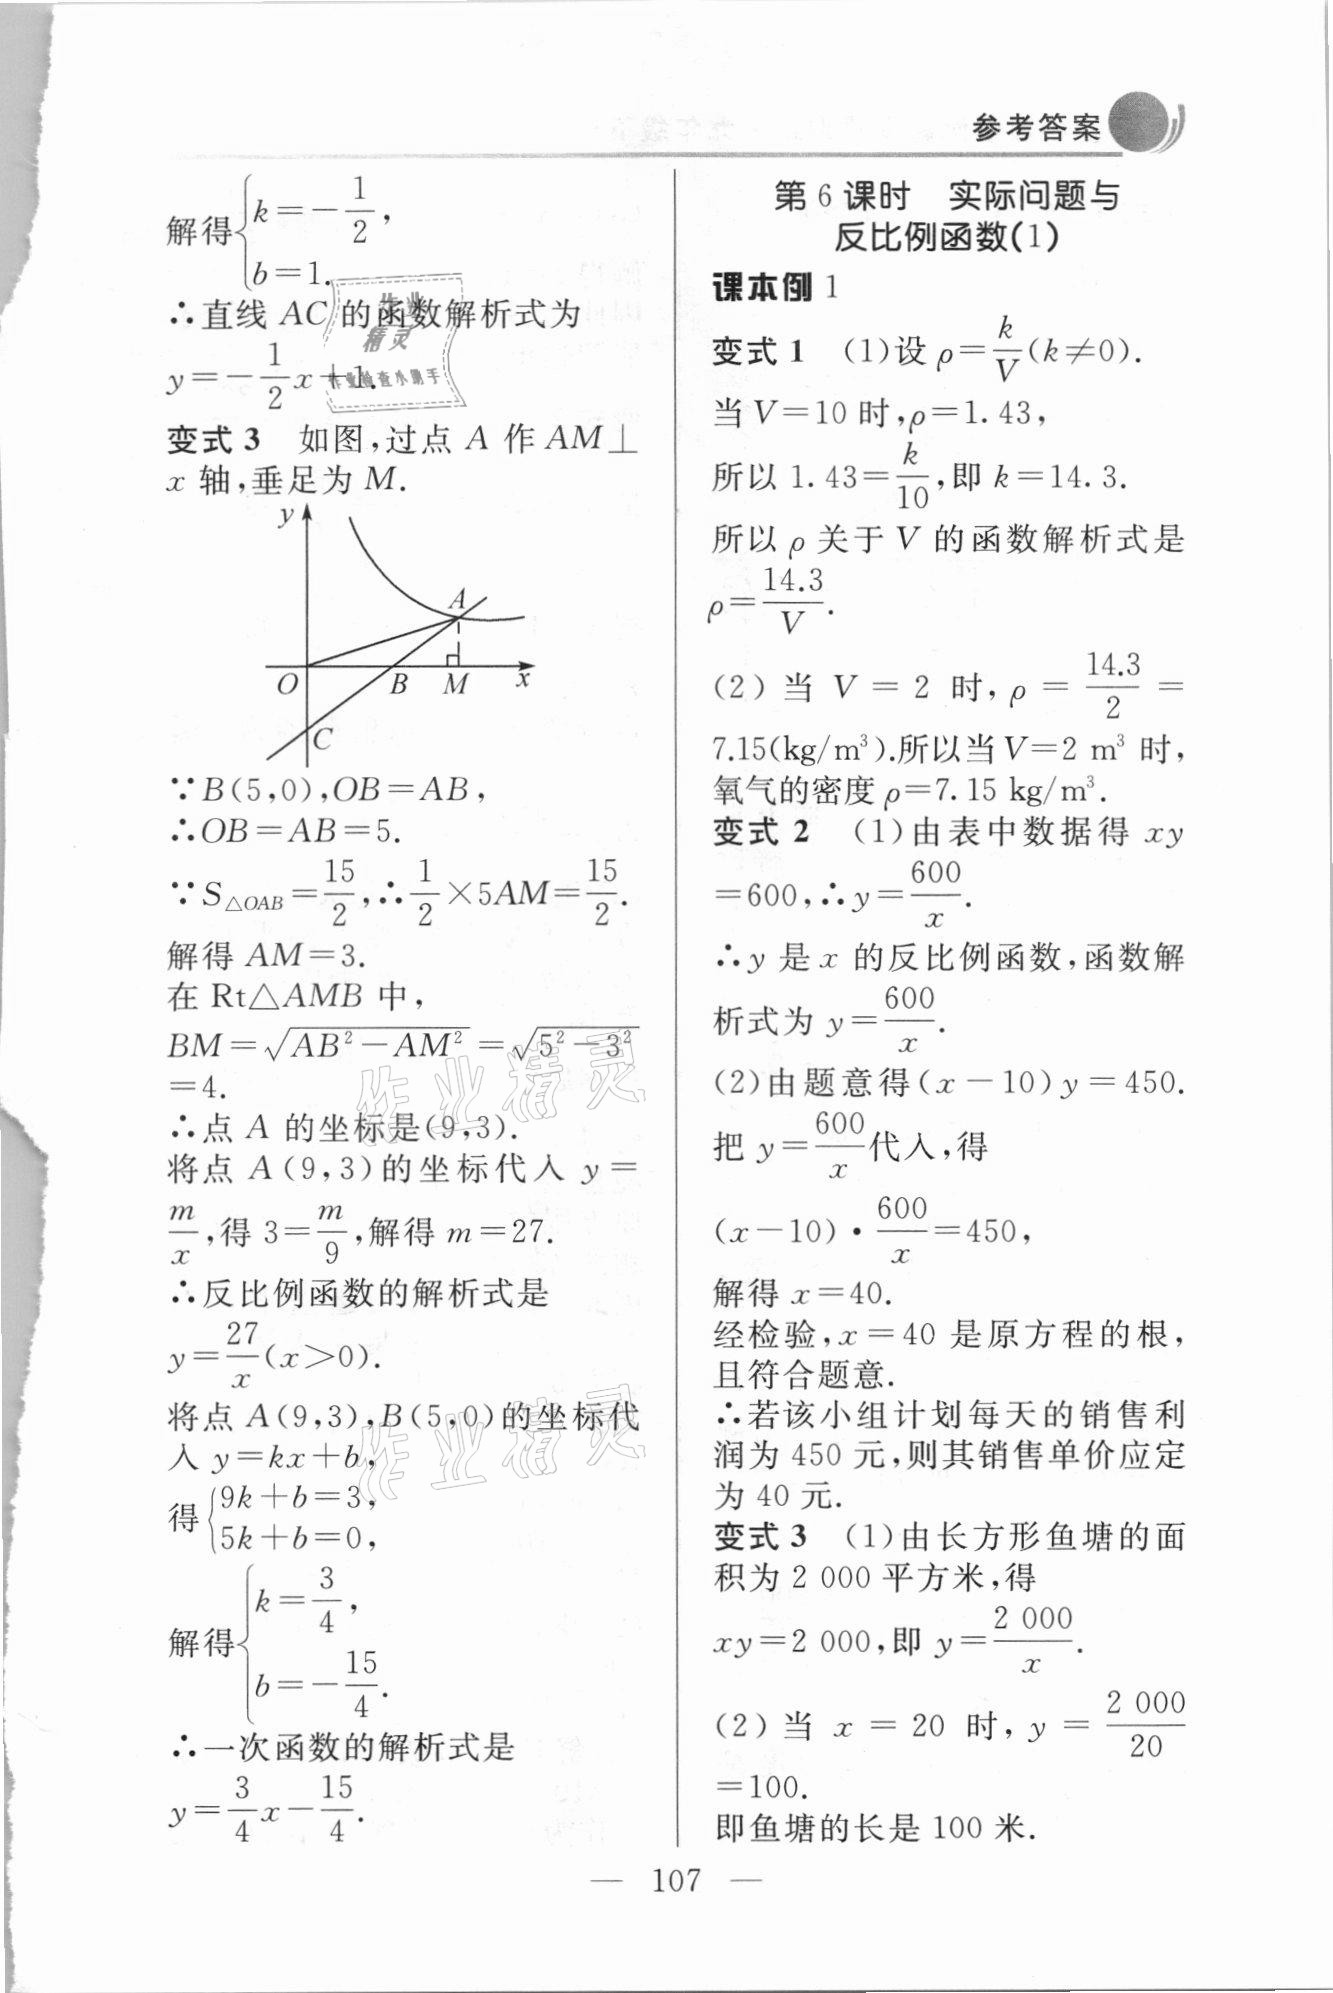 参考答案
解得{k=-1/2,
b=1.
∴直线 AC 的函数解析式为
y=-1/2x+1.
变式 3 如图,过点 A 作 AM⊥
x 轴,垂足为 M.
y
A
O
B
M
x
C
∵B(5,0),OB=AB,
∴OB=AB=5.
∵S△OAB=15/2,∴1/2×5AM=15/2.
解得 AM=3.
在 Rt△AMB 中,
BM=√(AB²-AM²)=√(5²-3²)
=4.
∴点 A 的坐标是(9,3).
将点 A(9,3)的坐标代入 y=
m/x,得 3=m/9,解得 m=27.
∴反比例函数的解析式是
y=27/x(x>0).
将点 A(9,3),B(5,0)的坐标代
入 y=kx+b,
得{9k+b=3,
5k+b=0,
解得{k=3/4,
b=-15/4.
∴一次函数的解析式是
y=3/4x-15/4.
第 6 课时 实际问题与
反比例函数(1)
课本例 1
变式 1 (1)设 ρ=k/V(k≠0).
当 V=10 时,ρ=1.43,
所以 1.43=k/10,即 k=14.3.
所以 ρ 关于 V 的函数解析式是
ρ=14.3/V.
(2) 当 V = 2 时, ρ = 14.3/2 =
7.15(kg/m³).所以当 V=2 m³ 时,
氧气的密度 ρ=7.15 kg/m³.
变式 2 (1)由表中数据得 xy
=600,∴y=600/x.
∴y 是 x 的反比例函数,函数解
析式为 y=600/x.
(2)由题意得(x-10)y=450.
把 y=600/x代入,得
(x-10)·600/x=450,
解得 x=40.
经检验,x=40 是原方程的根,
且符合题意.
∴若该小组计划每天的销售利
润为 450 元,则其销售单价应定
为 40 元.
变式 3 (1)由长方形鱼塘的面
积为 2 000 平方米,得
xy=2 000,即 y=2 000/x.
(2) 当 x = 20 时, y = 2 000/20
=100.
即鱼塘的长是 100 米.
— 107 —
作业
精灵
作业检查小助手
作业精灵
作业精灵